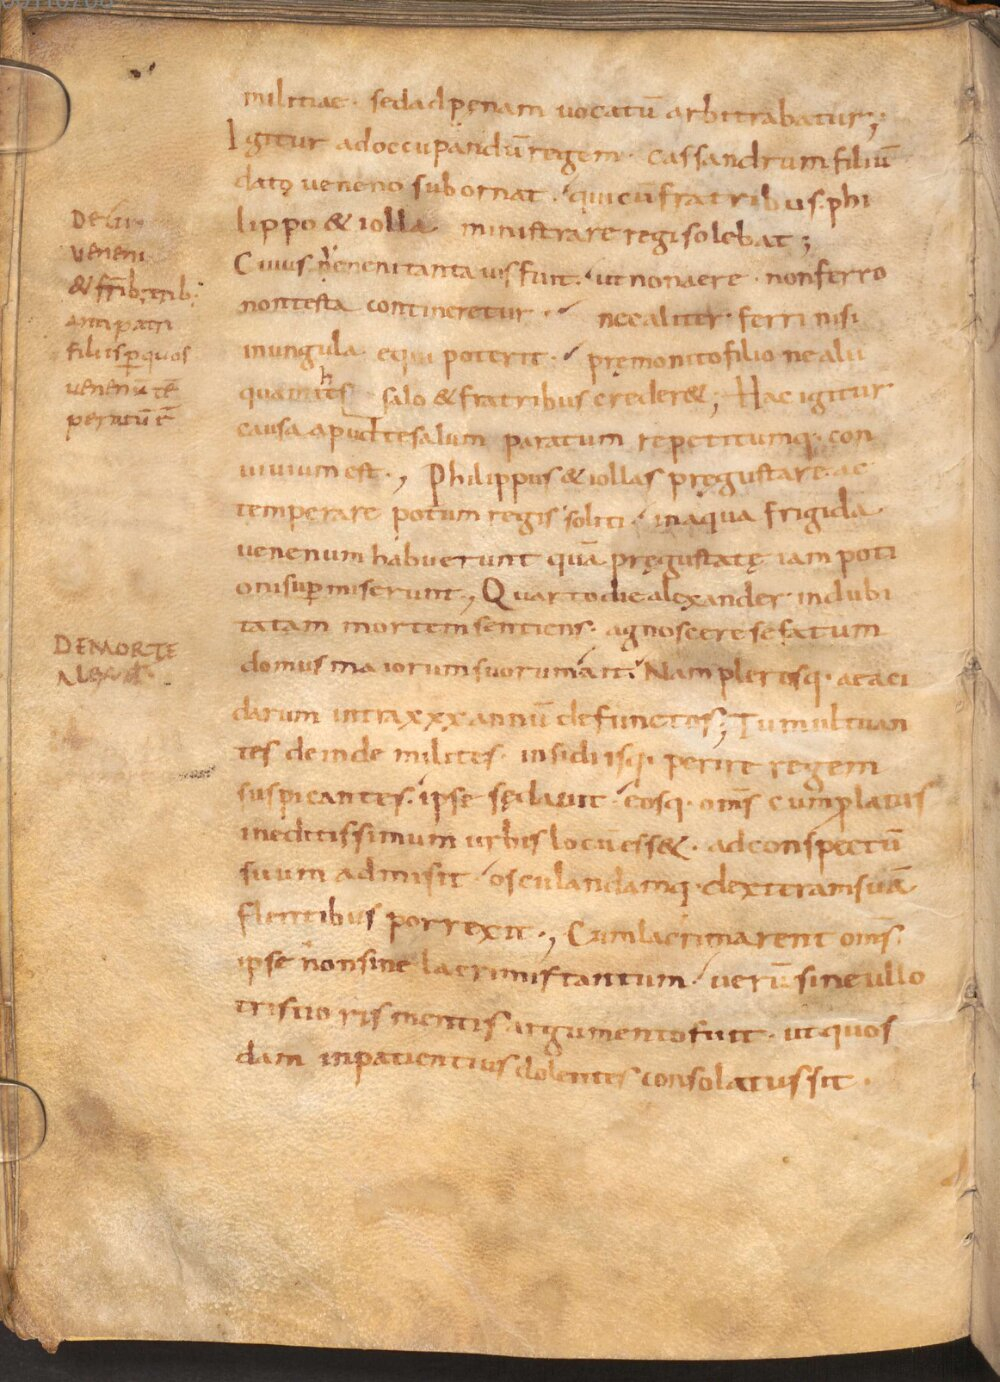 militiae · sed ad pęnam vocatū arbitrabatur;
Igitur ad occupandū regem · cassandrum filiū
dato veneno subornat · qui cū fratribus · phi
lippo & iolla ministrare regi solebat ;
Cuius veneni tanta vis fuit · ut non aere · non ferro
non testa contineretur · nec aliter ferri nisi
in ungula equi poterit · pręmonito filio ne alii
quam thessalo & fratribus crederet; Hac igitur
causa apud tesalum paratum repetitumq · con
vivium est ·, Philippus & iollas pręgustare ac
temperare potum regis soliti · in aqua frigida
venenum habuerunt quā pręgustatę iam poti
oni sup miserunt, Quarto die alexander indubi
tatam mortem sentiens · agnoscere se fatum
domus maiorum suorum ait · Nam plerisq · aeaci
darum intra xxx annū defunctos; Tumultuan
tes deinde milites · insidiisq · perire regem
suspicantes · ipse sędavit · eosq · om̄s cum platus
in editissimum urbis locū esset · ad conspectū
suum admisit · osculandamq · dexteram suā
flentibus porrexit ·, Cum lacrimarent om̄s
ipse non sine lacrimis tantum · verū sine ullo
tristioris mentis argumento fuit · ut quos
dam inpatientius dolentes consolatus sit ·
veneni
& frib; trib;
antipatri
filiis p quos
venenū tē
peratū ē
DE MORTE